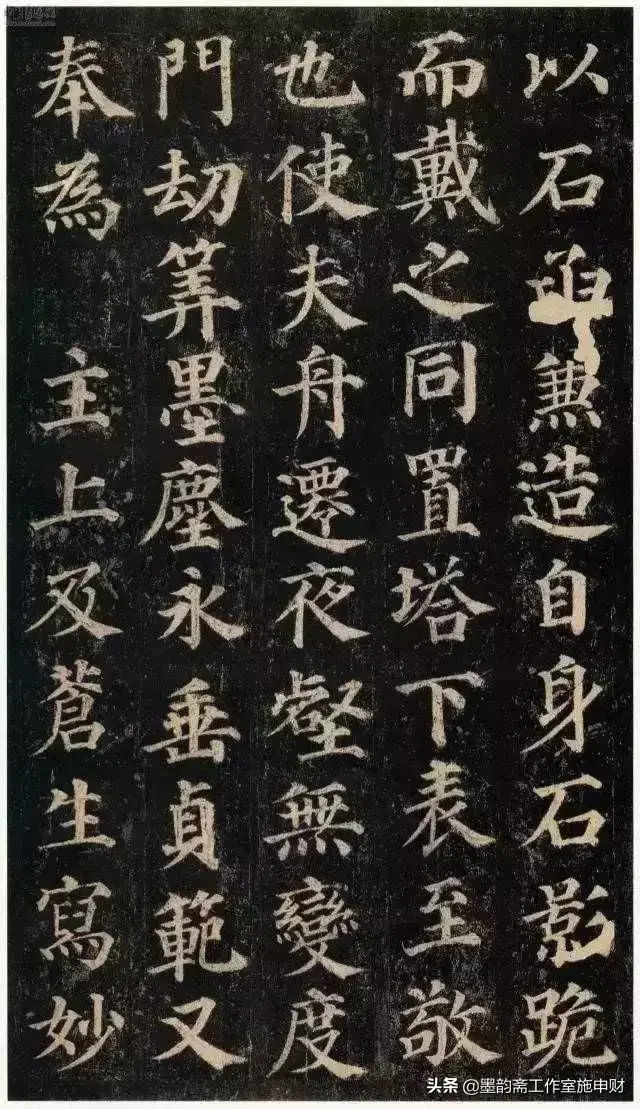 以石函兼造自身石影跪
而戴之同置塔下表至敬
也使夫舟遷夜壑無變度
門劫筭墨塵永垂貞範又
奉為 主上及蒼生寫妙
头条 @墨韵斋工作室施申财